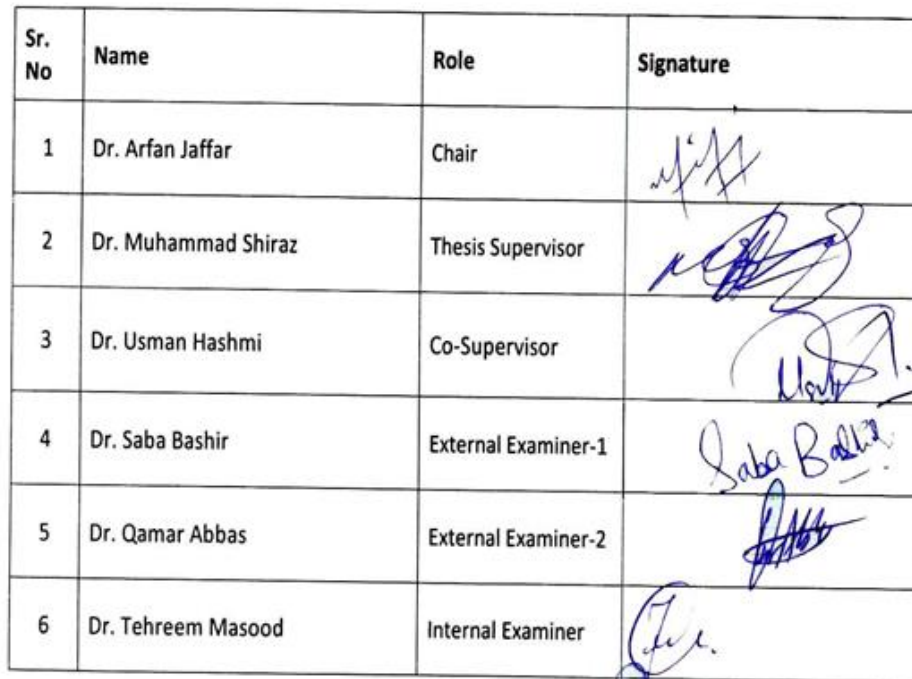 Sr. No Name Role Signature
1 Dr. Arfan Jaffar Chair
2 Dr. Muhammad Shiraz Thesis Supervisor
3 Dr. Usman Hashmi Co-Supervisor
4 Dr. Saba Bashir External Examiner-1 Saba Bashir
5 Dr. Qamar Abbas External Examiner-2
6 Dr. Tehreem Masood Internal Examiner